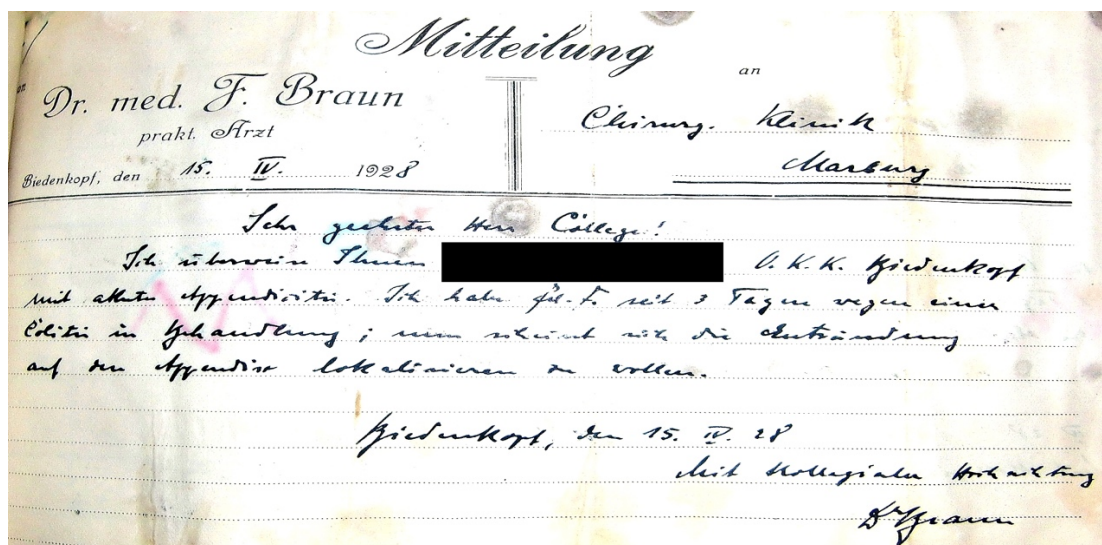 Mitteilung
an
Dr. med. F. Braun
prakt. Arzt
Biedenkopf, den 15. IV. 1928
Chirurg. Klinik
Marburg
Sehr geehrter Herr College!
Ich überweise Ihnen O.K.K. Biedenkopf
mit akuter Appendicitis. Ich habe Frl. F. seit 3 Tagen wegen einer
Colitis in Behandlung; nun scheint sich die Entzündung
auf den Appendix lokalisieren zu wollen.
Biedenkopf, den 15. IV. 28
Mit kollegialer Hochachtung
Dr Braun